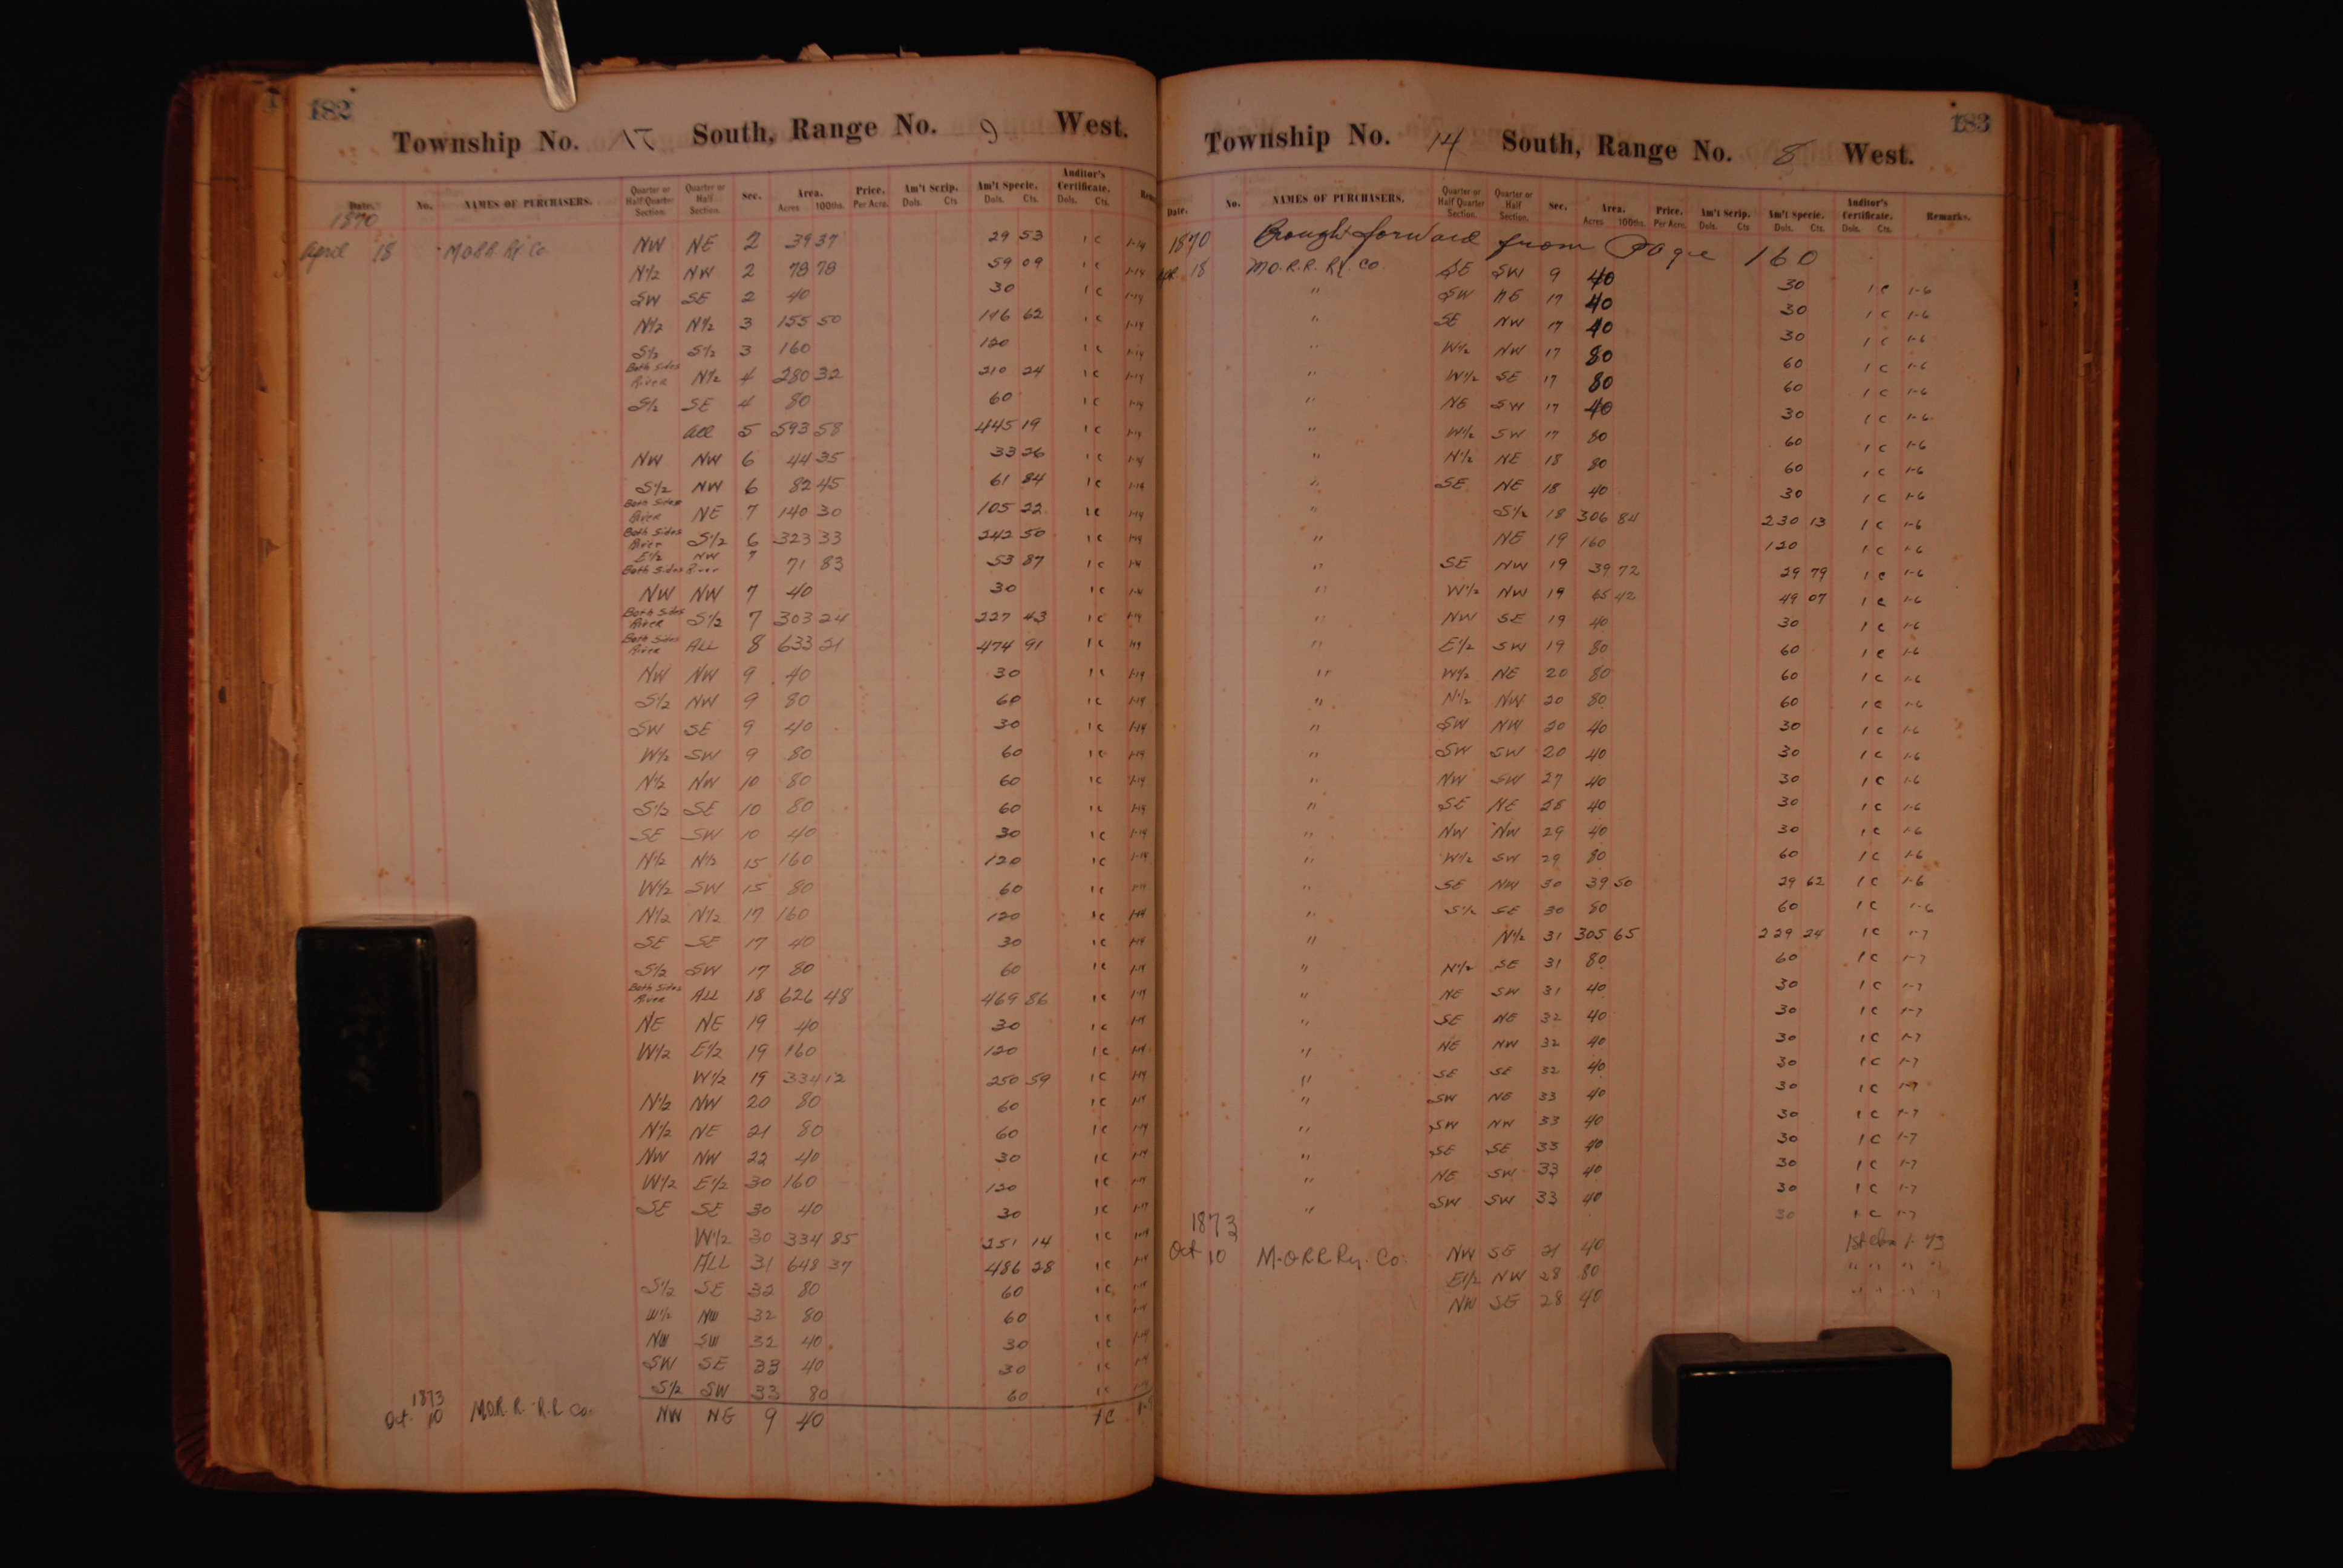 182
Township No. 17 South, Range No. 9 West.
Date. No. NAMES OF PURCHASERS. Quarter or Half Quarter Section. Quarter or Half Section. Sec. Area. Acres 100ths. Price. Per Acre. Am't Scrip. Dols. Cts. Am't Specie. Dols. Cts. Auditor's Certificate. Dols. Cts.
1870
April 18 M.O.R.R. Ry. Co. NW NE 2 39 37 29 53 1 C 1-14
N½ NW 2 78 78 59 09 1 C 1-14
SW SE 2 40 30 1 C 1-14
N½ N½ 3 155 50 116 62 1 C 1-14
S½ S½ 3 160 120 1 C 1-14
Both Sides River N½ 4 280 32 210 24 1 C 1-14
S½ SE 4 80 60 1 C 1-14
All 5 593 58 445 19 1 C 1-14
NW NW 6 44 35 33 26 1 C 1-14
S½ NW 6 82 45 61 84 1 C 1-14
Both Sides River NE 7 140 30 105 22 1 C 1-14
Both Sides River S½ 6 323 33 242 50 1 C 1-14
E½ NW 7 Both Sides River 71 83 53 87 1 C 1-14
NW NW 7 40 30 1 C 1-14
Both Sides River S½ 7 303 24 227 43 1 C 1-14
Both Sides River ALL 8 633 21 474 91 1 C 1-14
NW NW 9 40 30 1 C 1-14
S½ NW 9 80 60 1 C 1-14
SW SE 9 40 30 1 C 1-14
W½ SW 9 80 60 1 C 1-14
N½ NW 10 80 60 1 C 1-14
S½ SE 10 80 60 1 C 1-14
SE SW 10 40 30 1 C 1-14
N½ N½ 15 160 120 1 C 1-14
W½ SW 15 80 60 1 C 1-14
N½ N½ 17 160 120 1 C 1-14
SE SE 17 40 30 1 C 1-14
S½ SW 17 80 60 1 C 1-14
Both Sides River ALL 18 626 48 469 86 1 C 1-14
NE NE 19 40 30 1 C 1-14
W½ E½ 19 160 120 1 C 1-14
W½ 19 334 12 250 59 1 C 1-14
N½ NW 20 80 60 1 C 1-14
N½ NE 21 80 60 1 C 1-14
NW NW 22 40 30 1 C 1-14
W½ E½ 30 160 120 1 C 1-14
SE SE 30 40 30 1 C
W½ 30 334 85 251 14 1 C 1-14
ALL 31 648 37 486 28 1 C 1-14
S½ SE 32 80 60 1 C 1-14
W½ NW 32 80 60 1 C 1-14
NW SW 32 40 30 1 C 1-14
SW SE 33 40 30 1 C 1-14
S½ SW 33 80 60 1 C 1-14
1873
Oct. 10 M.O.R.R. R.R. Co. NW NE 9 40 1 C
183
Township No. 14 South, Range No. 8 West.
Date. No. NAMES OF PURCHASERS. Quarter or Half Quarter Section. Quarter or Half Section. Sec. Area. Acres 100ths. Price. Per Acre. Am't Scrip. Dols. Cts Am't Specie. Dols. Cts. Auditor's Certificate. Dols. Cts. Remarks.
1870 Brought forward from Page 160
Apr 18 M.O.R.R. Ry. Co. SE SW 9 40 30 1 C 1-6
" SW NE 17 40 30 1 C 1-6
" SE NW 17 40 30 1 C 1-6
" W½ NW 17 80 60 1 C 1-6
" W½ SE 17 80 60 1 C 1-6
" NE SW 17 40 30 1 C 1-6
" W½ SW 17 80 60 1 C 1-6
" N½ NE 18 80 60 1 C 1-6
" SE NE 18 40 30 1 C 1-6
" S½ 18 306 84 230 13 1 C 1-6
" NE 19 160 120 1 C 1-6
" SE NW 19 39 72 29 79 1 C 1-6
" W½ NW 19 65 42 49 07 1 C 1-6
" NW SE 19 40 30 1 C 1-6
" E½ SW 19 80 60 1 C 1-6
" W½ NE 20 80 60 1 C 1-6
" N½ NW 20 80 60 1 C 1-6
" SW NW 20 40 30 1 C 1-6
" SW SW 20 40 30 1 C 1-6
" NW SW 27 40 30 1 C 1-6
" SE NE 28 40 30 1 C 1-6
" NW NW 29 40 30 1 C 1-6
" W½ SW 29 80 60 1 C 1-6
" SE NW 30 39 50 29 62 1 C 1-6
" S½ SE 30 80 60 1 C 1-6
" N½ 31 305 65 229 24 1 C 1-7
" N½ SE 31 80 60 1 C 1-7
" NE SW 31 40 30 1 C 1-7
" SE NE 32 40 30 1 C 1-7
" NE NW 32 40 30 1 C 1-7
" SE SE 32 40 30 1 C 1-7
" SW NE 33 40 30 1 C 1-7
" SW NW 33 40 30 1 C 1-7
" SE SE 33 40 30 1 C 1-7
" NE SW 33 40 30 1 C 1-7
" SW SW 33 40 30 1 C 1-7
1873 30 1 C 1-7
Oct 10 M.O.R.R.Ry. Co. NW SE 21 40 1st 1-73
E½ NW 28 80 " " " "
NW SE 28 40 " " " "